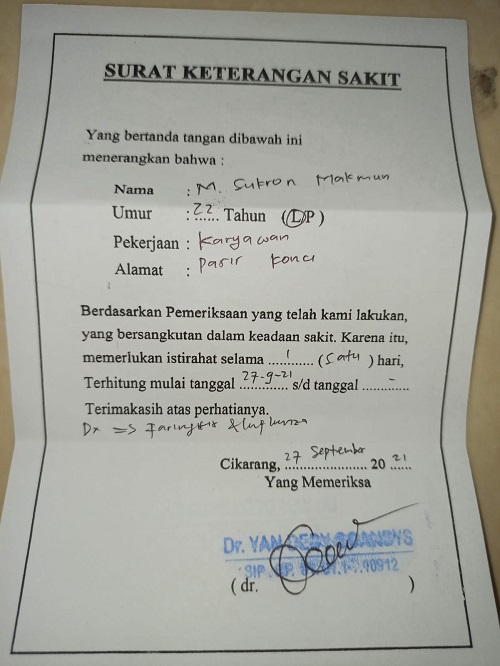 SURAT KETERANGAN SAKIT
Yang bertanda tangan dibawah ini
menerangkan bahwa :
Nama : M. Sukron Makmun
Umur : 22 Tahun (L/P)
Pekerjaan : Karyawan
Alamat : Pasir Konci
Berdasarkan Pemeriksaan yang telah kami lakukan,
yang bersangkutan dalam keadaan sakit. Karena itu,
memerlukan istirahat selama ...1... (Satu) hari,
Terhitung mulai tanggal 27-9-21 s/d tanggal ....-....
Terimakasih atas perhatianya.
Dx => Faringitis &
Cikarang, 27 September 2021
Yang Memeriksa
Dr. YAN
(dr. )